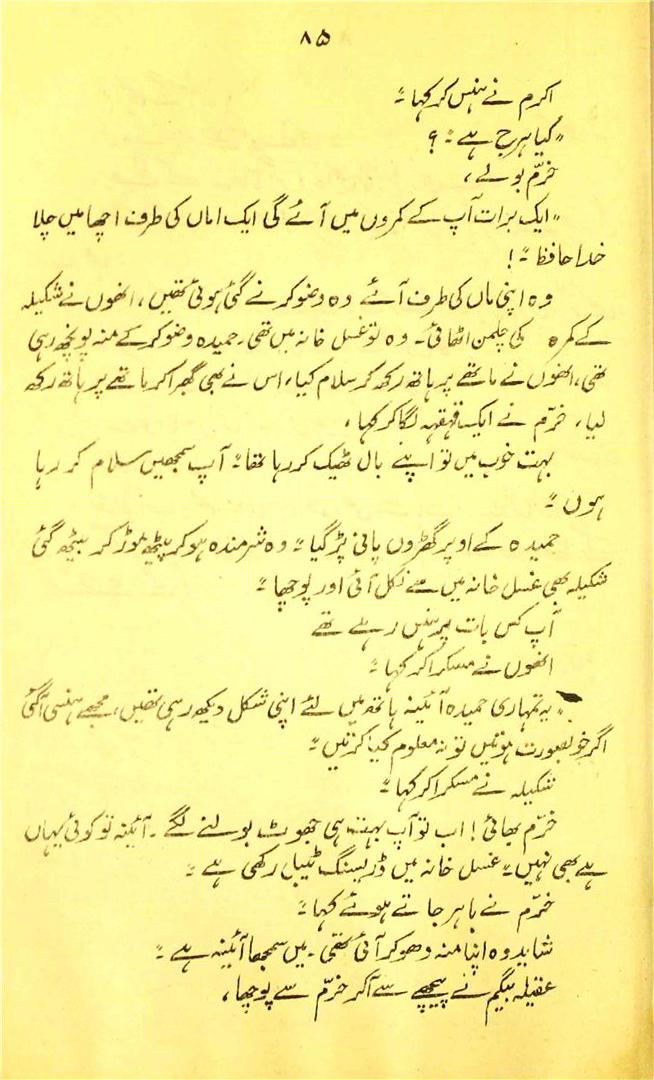 ۸۵
اکرم نے ہنس کر کہا ۔"
"کیا ہرج ہے ۔" ؟
خرّم بولے،
"ایک برات آپ کے کمروں میں آئے گی ایک اماں کی طرف اچھا میں چلا
خدا حافظ ۔" !
وہ اپنی ماں کی طرف آئے وہ وضو کرنے گئی ہوئی تھیں، انھوں نے شکیلہ
کے کمرہ کی چلمن اٹھائی۔ وہ تو غسل خانہ میں تھی۔ حمیدہ وضو کر کے منہ پونچھ رہی
تھی، انھوں نے ماتھے پر ہاتھ رکھ کر سلام کیا، اس نے بھی گھبرا کر ماتھے پر ہاتھ رکھ
لیا، خرّم نے ایک قہقہہ لگا کر کہا،
بہت خوب میں تو اپنے بال ٹھیک کر رہا تھا ۔" آپ سمجھیں سلام کر رہا
ہوں ۔"
حمیدہ کے اوپر گھڑوں پانی پڑ گیا ۔" وہ شرمندہ ہو کر پیٹھ موڑ کر بیٹھ گئی
شکیلہ بھی غسل خانہ میں سے نکل آئی اور پوچھا ۔"
آپ کس بات پر ہنس رہے تھے
انھوں نے مسکرا کر کہا ۔"
"یہ تمہاری حمیدہ آئینہ ہاتھ میں لئے اپنی شکل دیکھ رہی تھیں، مجھے ہنسی آگئی
اگر خوبصورت ہوتیں تو نہ معلوم کیا کرتیں ۔"
شکیلہ نے مسکرا کر کہا ۔"
خرّم بھائی ! اب تو آپ بہت ہی جھوٹ بولنے لگے ۔ آئینہ تو کوئی یہاں
ہے بھی نہیں ۔" غسل خانہ میں ڈریسنگ ٹیبل رکھی ہے ۔"
خرّم نے باہر جاتے ہوئے کہا ۔"
شاید وہ اپنا منہ دھو کر آئی تھی ۔ میں سمجھا آئینہ ہے ۔"
عقیلہ بیگم نے پیچھے سے آکر خرّم سے پوچھا،